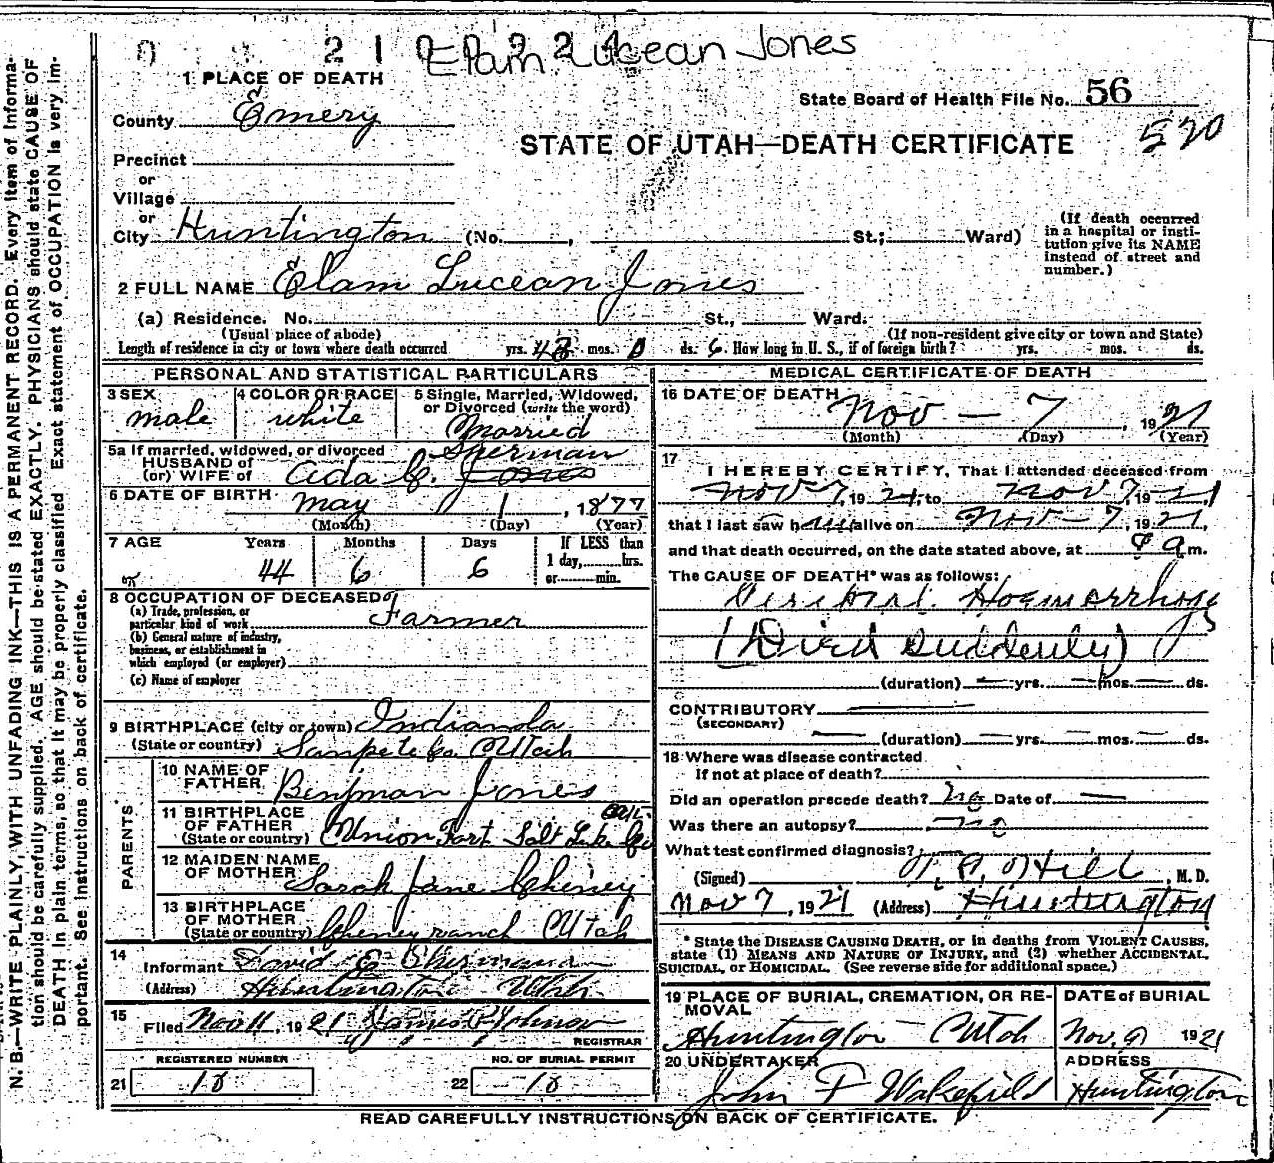 2 1
Elam Lucean Jones
1 PLACE OF DEATH
State Board of Health File No. 56
County Emery
570
STATE OF UTAH—DEATH CERTIFICATE
Precinct
or
Village
or
City Huntington (No. , St.; Ward)
(If death occurred in a hospital or insti-
tution give its NAME
instead of street and
number.)
2 FULL NAME Elam Lucean Jones
(a) Residence. No. St., Ward.
(Usual place of abode) (If non-resident give city or town and State)
Length of residence in city or town where death occurred yrs. mos. 0 ds. 6 How long in U. S., if of foreign birth? yrs. mos. ds.
PERSONAL AND STATISTICAL PARTICULARS
3 SEX male
4 COLOR OR RACE white
5 Single, Married, Widowed,
or Divorced (write the word)
Married
5a If married, widowed, or divorced
HUSBAND of
(or) WIFE of Ada C. Jones Sherman
6 DATE OF BIRTH May 1, 1877
(Month) (Day) (Year)
7 AGE Years Months Days If LESS than
1 day, hrs.
or min.
44 6 6
8 OCCUPATION OF DECEASED
(a) Trade, profession, or
particular kind of work Farmer
(b) General nature of industry,
business, or establishment in
which employed (or employer)
(c) Name of employer
9 BIRTHPLACE (city or town) Indianola
(State or country) Sanpete Co. Utah
PARENTS
10 NAME OF
FATHER Benjman Jones
11 BIRTHPLACE
OF FATHER
(State or country) Union Fort Salt Lake Co
12 MAIDEN NAME
OF MOTHER Sarah Jane Cheney
13 BIRTHPLACE
OF MOTHER
(State or country) Cheney ranch Utah
14
Informant David E Sherman
(Address) Huntington Utah
15
Filed Nov 11, 1921 James P Johnson
REGISTRAR
REGISTERED NUMBER NO. OF BURIAL PERMIT
21 18 22 18
MEDICAL CERTIFICATE OF DEATH
16 DATE OF DEATH
Nov — 7, 1921
(Month) (Day) (Year)
17
I HEREBY CERTIFY, That I attended deceased from
Nov 7, 1921, to Nov 7 1921
that I last saw him alive on Nov — 7, 1921,
and that death occurred, on the date stated above, at 9 a m.
The CAUSE OF DEATH* was as follows:
Cerebral Hoemorrhage
(Died Suddenly)
(duration) — yrs. — mos. — ds.
CONTRIBUTORY
(SECONDARY)
(duration) — yrs. — mos. — ds.
18 Where was disease contracted
if not at place of death?
Did an operation precede death? no Date of —
Was there an autopsy? no
What test confirmed diagnosis?
(Signed) Hill, M. D.
Nov 7, 1921 (Address) Huntington
* State the DISEASE CAUSING DEATH, or in deaths from VIOLENT CAUSES,
state (1) MEANS AND NATURE OF INJURY, and (2) whether ACCIDENTAL,
SUICIDAL, or HOMICIDAL. (See reverse side for additional space.)
19 PLACE OF BURIAL, CREMATION, OR RE-
MOVAL
Huntington Utah
DATE of BURIAL
Nov. 9 1921
20 UNDERTAKER
John F Wakefield
ADDRESS
Huntington
READ CAREFULLY INSTRUCTIONS ON BACK OF CERTIFICATE.
N. B.—WRITE PLAINLY, WITH UNFADING INK—THIS IS A PERMANENT RECORD. Every item of informa-
tion should be carefully supplied. AGE should be stated EXACTLY. PHYSICIANS should state CAUSE OF
DEATH in plain terms, so that it may be properly classified. Exact statement of OCCUPATION is very im-
portant. See instructions on back of certificate.